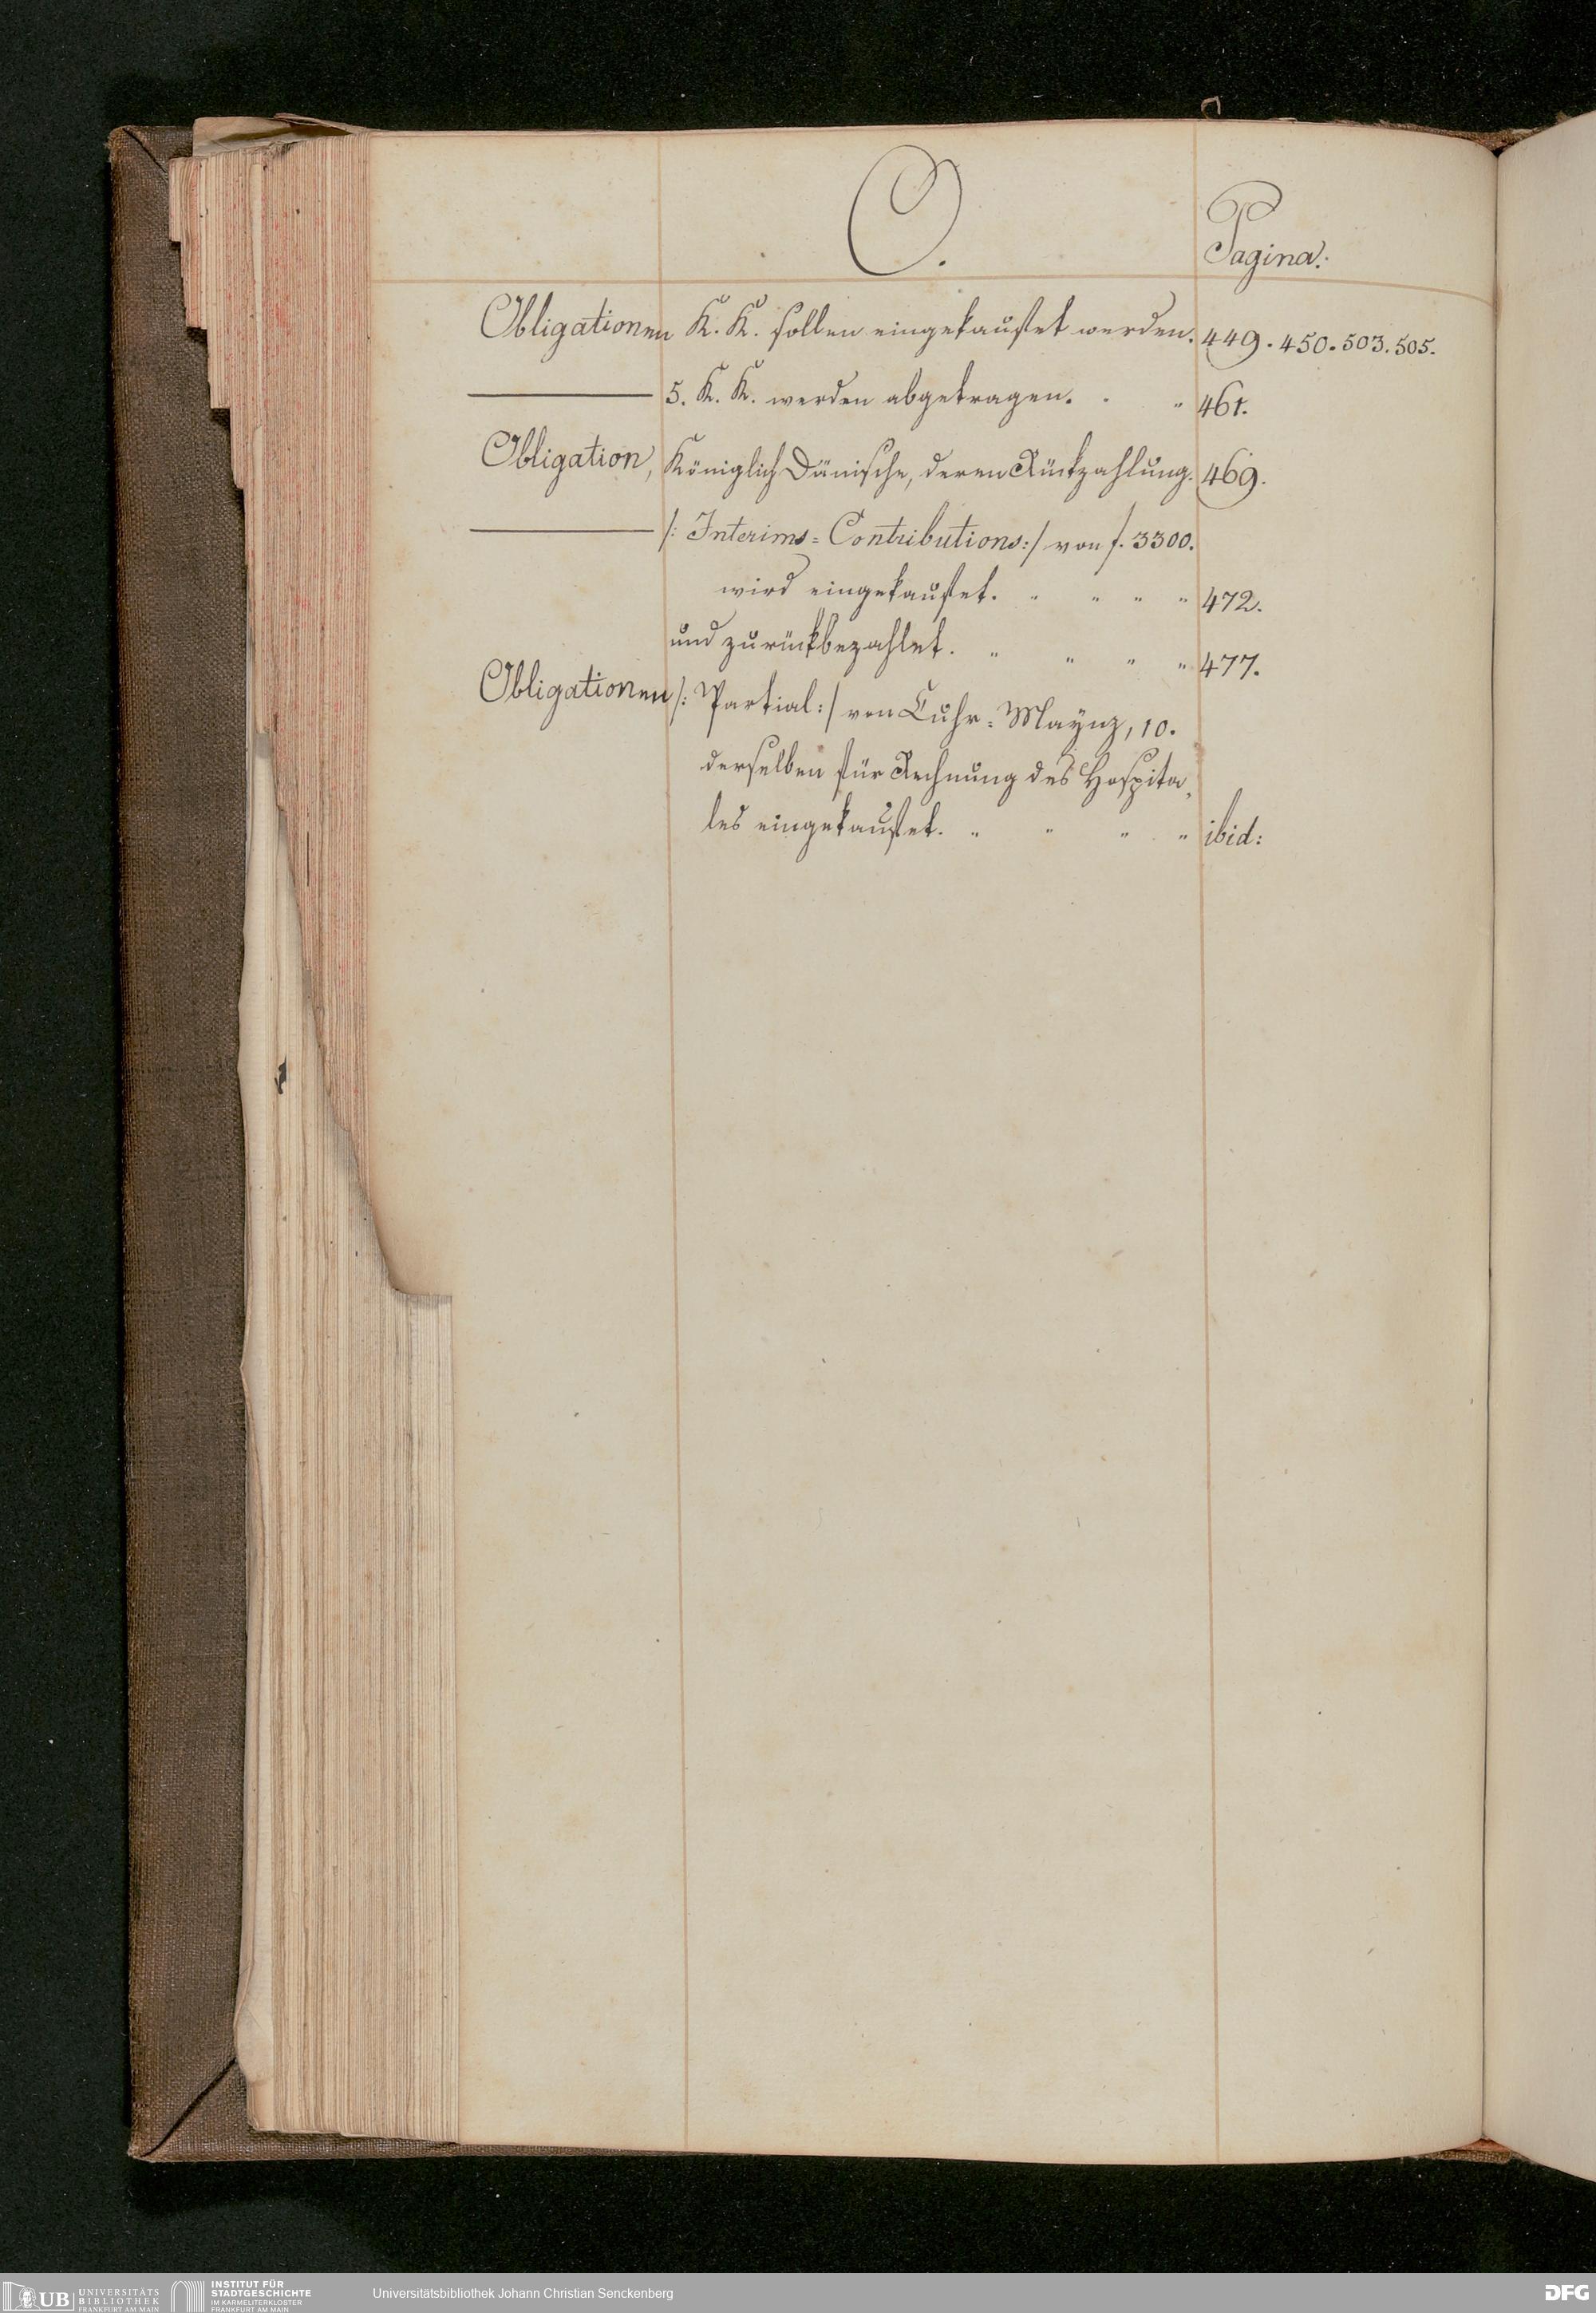 O.
Pagina:
Obligationen K. K. sollen eingekaufet werden. 449. 450. 503. 505.
——— 5. K. K. werden abgetragen. . " 461.
Obligation, Königlich Dänische, deren Rückzahlung. 469.
——— /: Interims=Contributions:/ von f. 3300.
wird eingekaufet. " " " " 472.
und zurückbezahlet. " " " " 477.
Obligationen /: Partial:/ von Cuhr=Maynz, 10.
derselben für Rechnung des Hospita„
les eingekaufet. " " " " ibid:
UB UNIVERSITÄTS
BIBLIOTHEK
FRANKFURT AM MAIN
INSTITUT FÜR
STADTGESCHICHTE
IM KARMELITERKLOSTER
FRANKFURT AM MAIN
Universitätsbibliothek Johann Christian Senckenberg
DFG